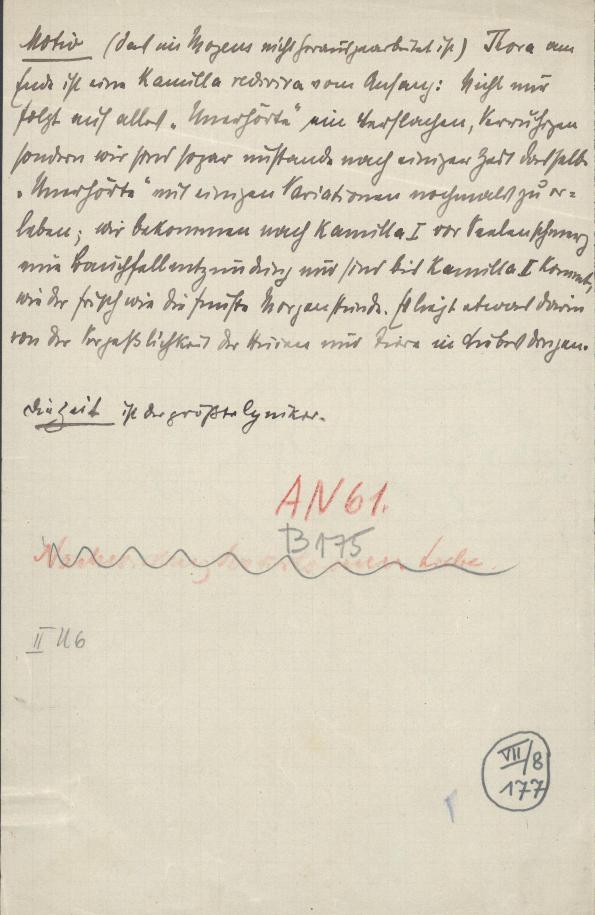 Motiv (das im Mogens nicht herausgearbeitet ist) Thora am
Ende ist eine Kamilla rediviva vom Anfang: Nicht nur
folgt auf alles „Unerhörte" ein Verflachen, Verruhigen
sondern wir sind sogar imstande nach einiger Zeit dasselbe
„Unerhörte" mit einigen Variationen nochmals zu er=
leben; wir bekommen nach Kamilla I vor Seelenschmerz
eine Bauchfellentzündung und sind bis Kamilla II kommt,
wieder frisch wie die Morgenstunde. Es liegt etwas darin
von der Vergeßlichkeit der und Tiere in Liebesdingen.
Die Zeit ist der größte Zyniker.
AN 61.
B 175
Liebe.
II
VII/8
177